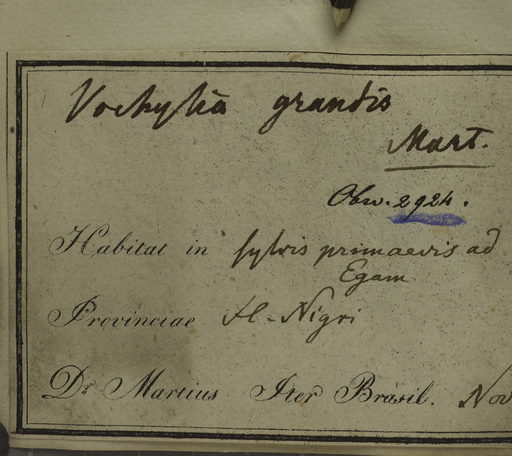 Vochysia grandis
Mart.
Obs. 2924.
Habitat in sylvis primaevis ad
Egam
Provinciae fl. Nigri
Dr Martius Iter Brasil. Nov